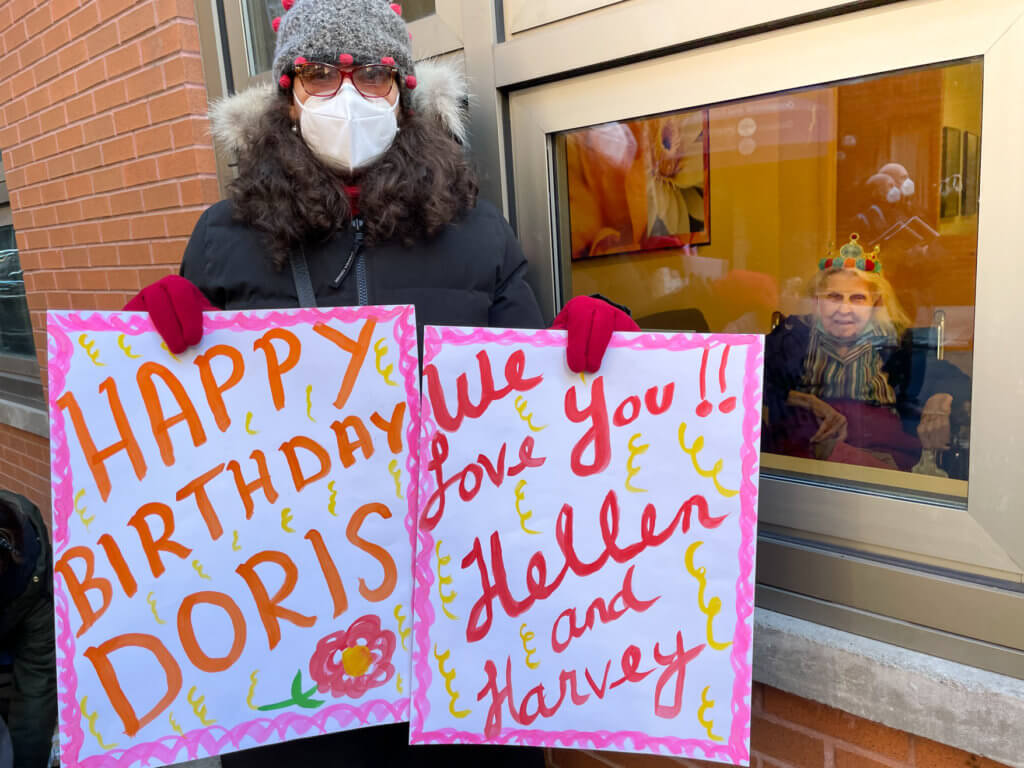 HAPPY
BIRTHDAY
DORIS
We
Love You!!
Hellen
and
Harvey